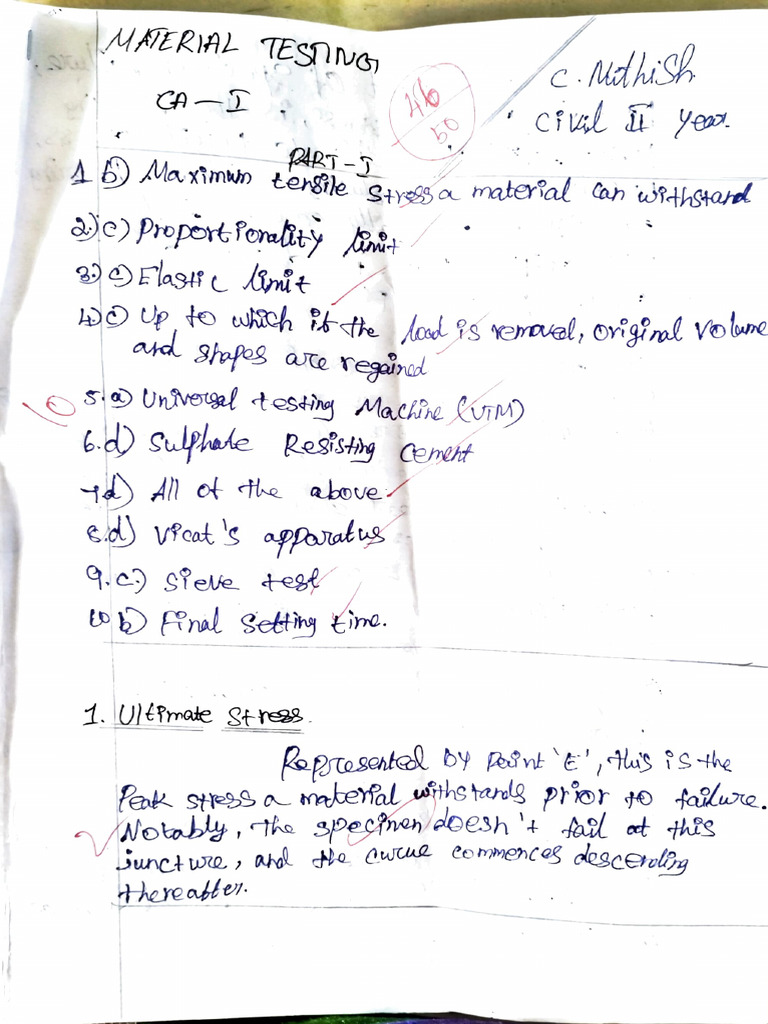 MATERIAL TESTING
CA - I
46
50
C. Mithish
Civil II Year.
PART-I
1 b) Maximum tensile stress a material can withstand
2.) c) Proportionality limit
3.) c) Elastic limit
4.) c) Up to which if the load is removed, original volume
and shapes are regained
10
5. a) Universal testing Machine (UTM)
6. d) Sulphate Resisting Cement
7 d) All of the above
8. d) Vicat's apparatus
9. c.) Sieve test
10 b) Final Setting time.
1. Ultimate Stress.
Represented by Point 'E', this is the
Peak stress a material withstands prior to failure.
Notably, the specimen doesn't fail at this
juncture, and the curve commences descending
thereafter.